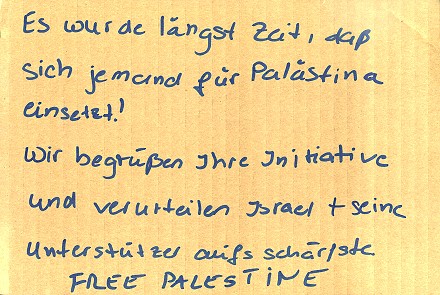 Es wurde längst Zeit, daß
sich jemand für Palästina
einsetzt!
Wir begrüßen Ihre Initiative
und verurteilen Israel + seine
Unterstützer aufs schärfste
FREE PALESTINE